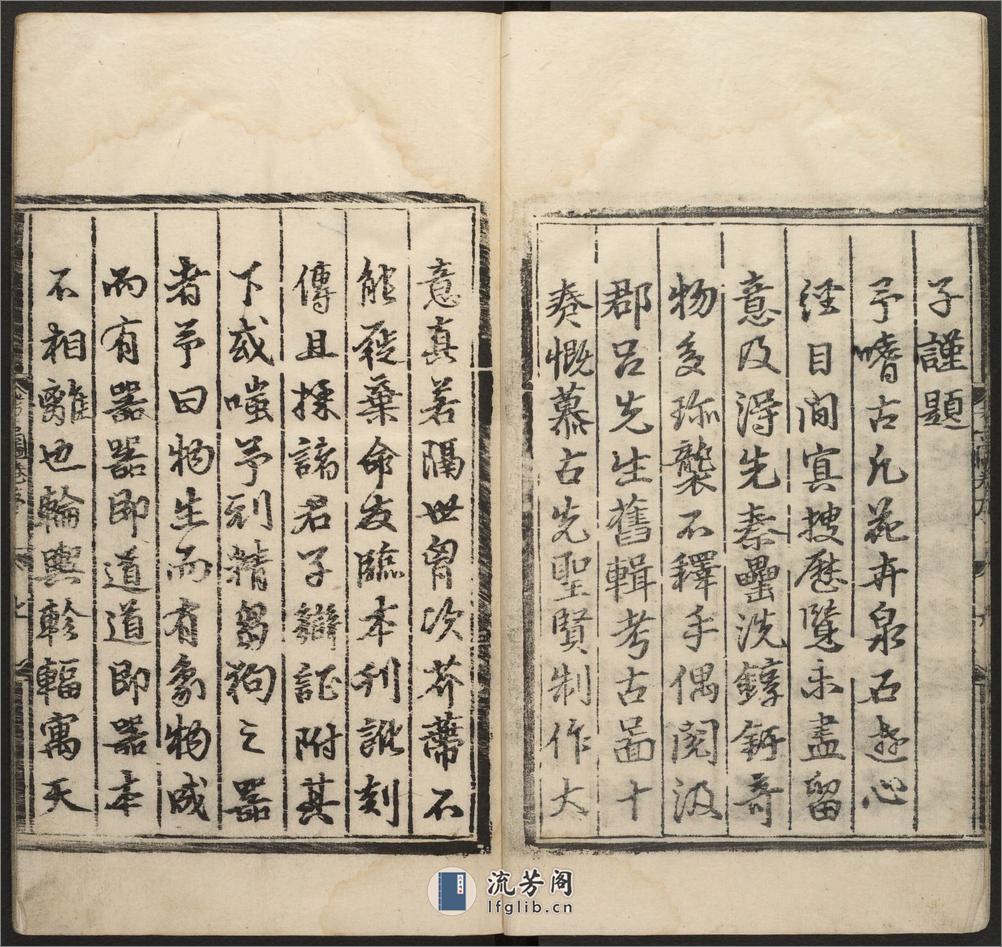 子謹題
予嗜古凡花卉泉石遊心
經目闻寘搜歷覽未盡留
意及淂先秦罍洗錞鈃奇
物多珎襲不釋手偶閱汲
郡吕先生舊輯考古啚十
奏慨慕古先聖賢制作大
意真若隔世胷次芥蔕不
能釋棄命友臨本刋訛刻
傳且揉諸君子辯証附其
下或嗤予刓精芻狗之器
者予曰物生而有象物成
而有器器即道道即器本
不相離也輪輿軫輻寓天
流芳阁
lfglib.cn